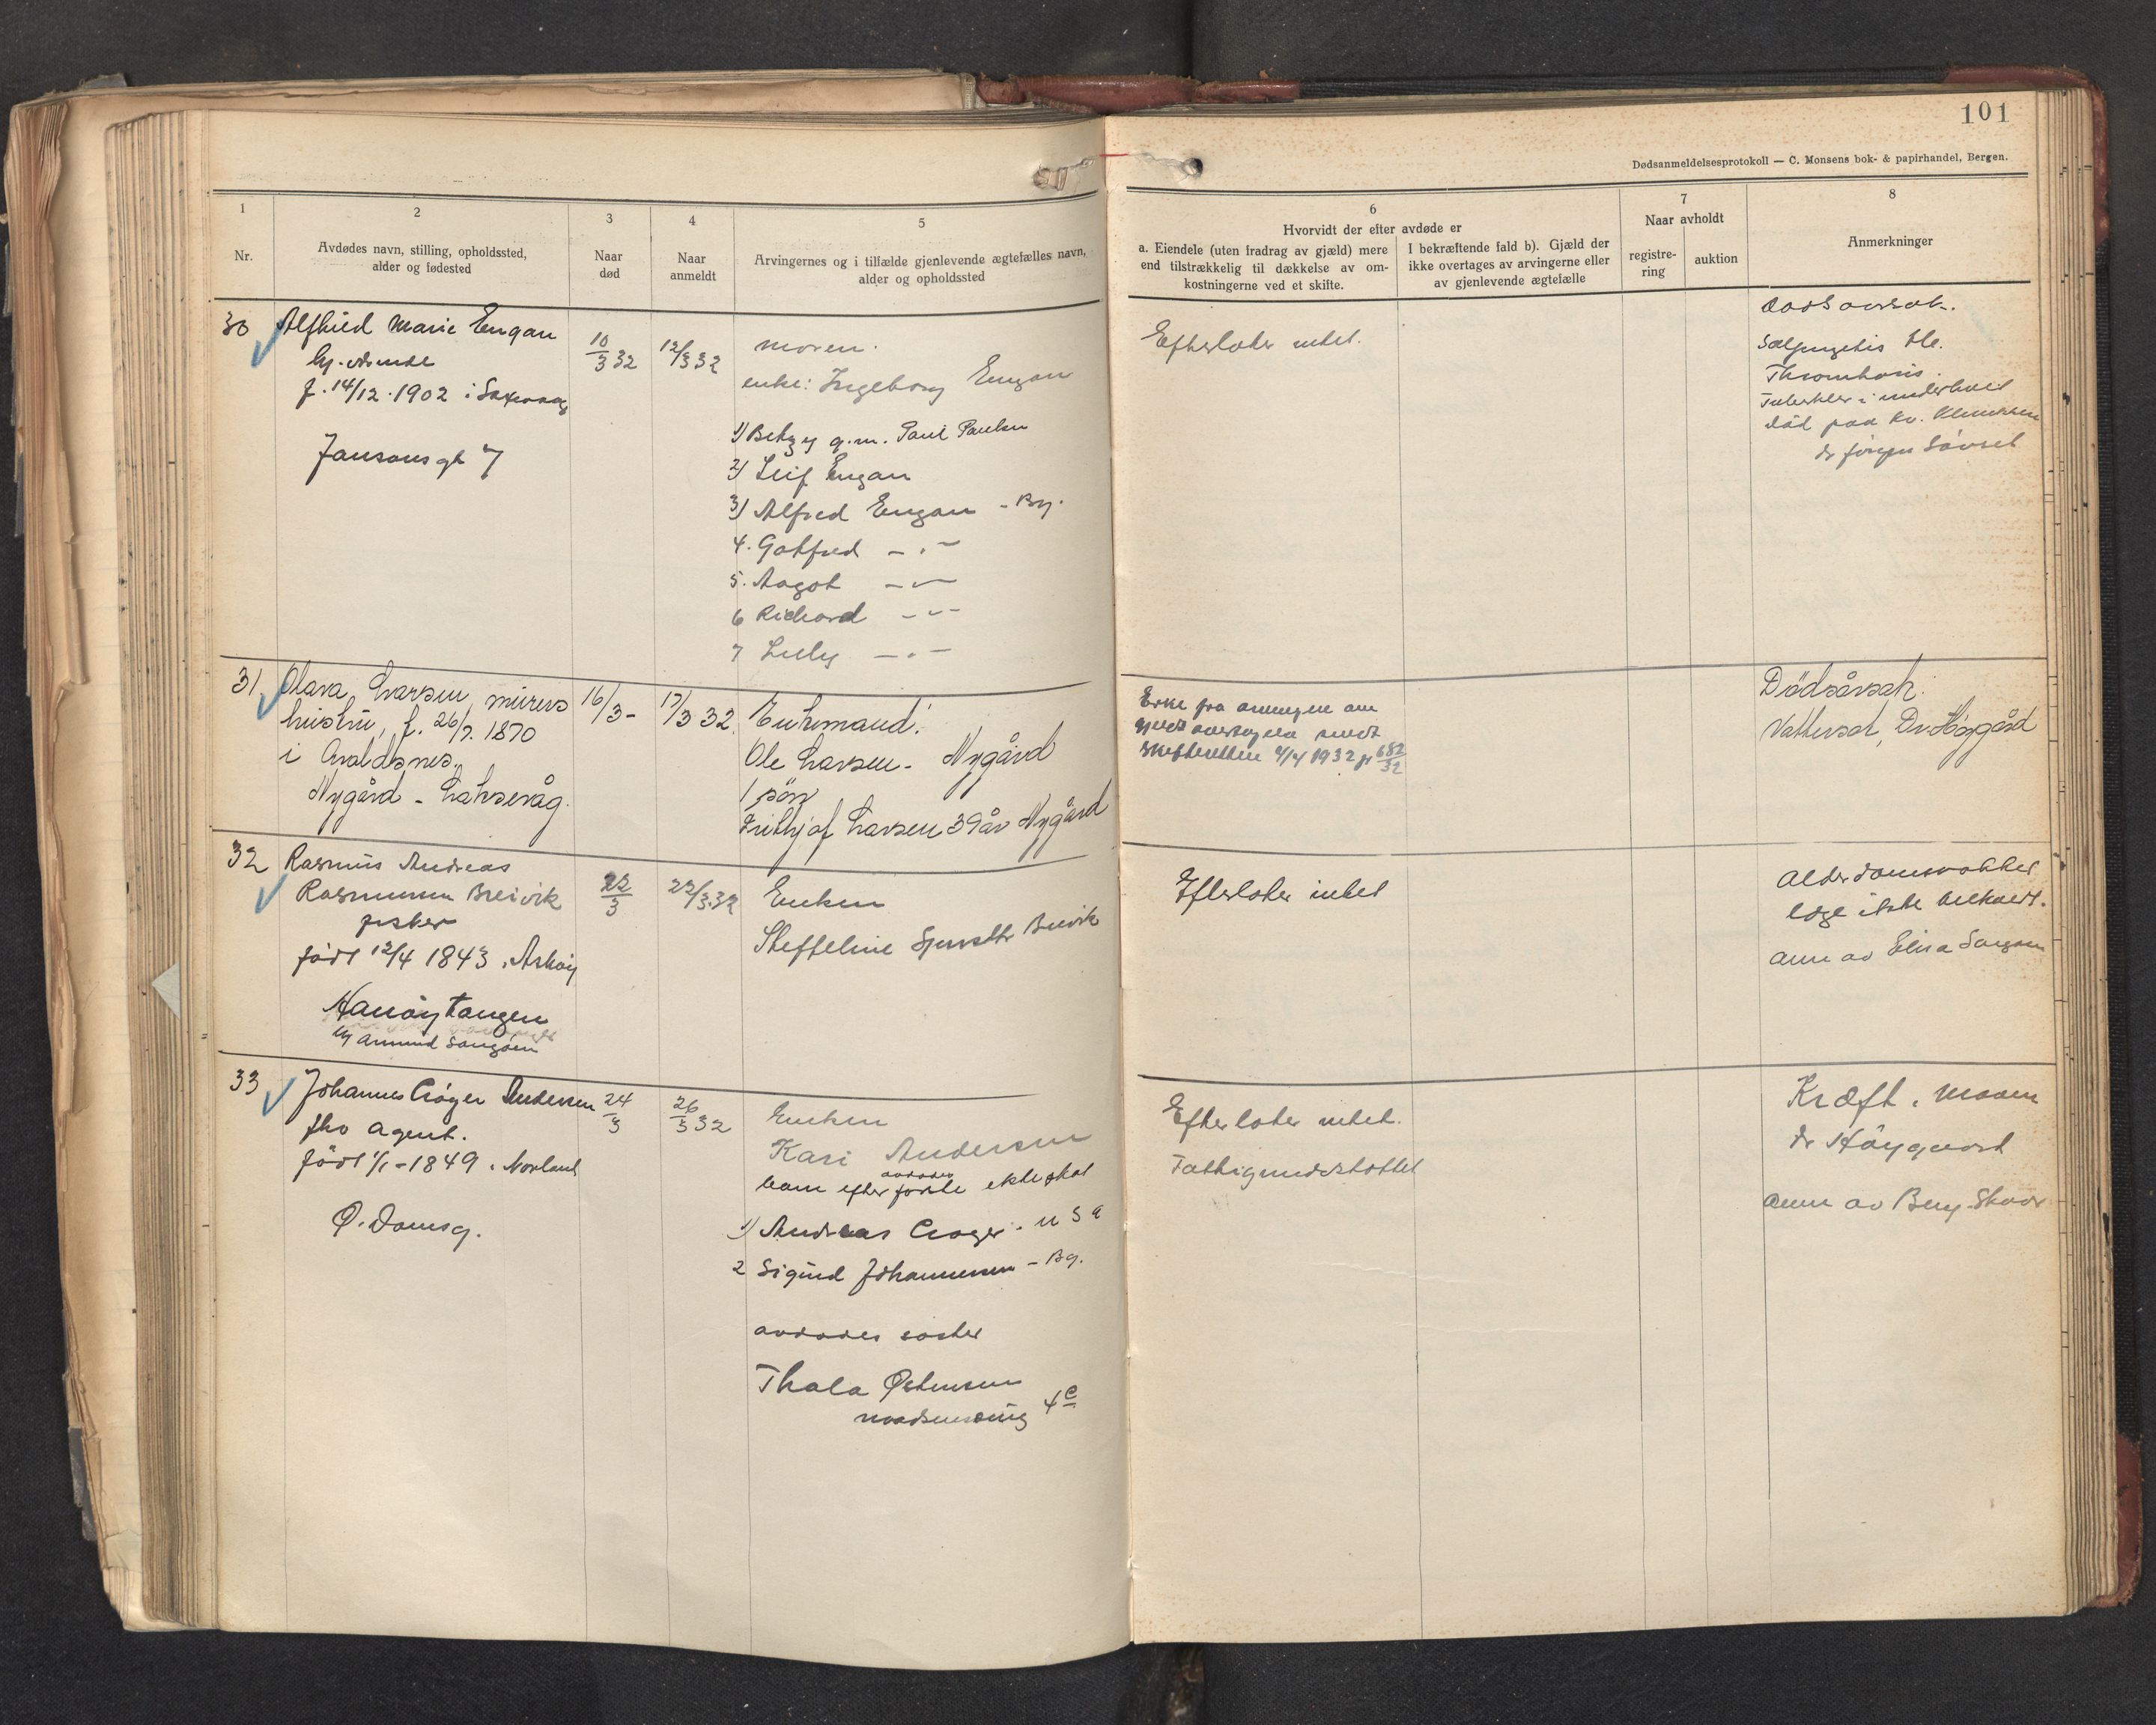 101
Dødsanmeldelsesprotokoll — C. Monsens bok- & papirhandel, Bergen.
1
Nr.
2
Avdødes navn, stilling, opholdssted,
alder og fødested
3
Naar
død
4
Naar
anmeldt
5
Arvingernes og i tilfælde gjenlevende ægtefælles navn,
alder og opholdssted
6
Hvorvidt der efter avdøde er
a. Eiendele (uten fradrag av gjæld) mere
end tilstrækkelig til dækkelse av om-
kostningerne ved et skifte.
I bekræftende fald b). Gjæld der
ikke overtages av arvingerne eller
av gjenlevende ægtefælle
7
Naar avholdt
registre-
ring
auktion
8
Anmerkninger
30
Marie Engan
f. 14/12.1902 i
Jansonsgt 7
10/3 32
12/3 32
moren.
enke: Ingeborg Engan
1) Betzy g.m. Paul Paulsen
2) Leif Engan
3) Alfred Engan - Bg.
4. Gotfred - " -
5. Aagot - " -
6 Richard - " -
7 Lilly - " -
Efterlater intet.
Dødsaarsak.
Thrombosis.
død paa
31
Olava Larsen, murers
hustru, f. 26/7. 1870
i Avaldsnes.
Nygård - Laksevåg.
16/3 -
17/3 32.
Enkemand:
Ole Larsen - Nygård
1 søn
Frithjof Larsen 39 år Nygård
skifteretten 4/4 1932 682/32
Dødsårsak:
Vattersot, Dr. Høygård
32
Rasmus Andreas
Rasmussen Breivik
fisker
født 12/4 1843 i Askøy
Hanøytangen
22/3
22/3.32
Enken
Steffeline Breivik
Efterlater intet
Alderdomssvakhet
læge ikke
anm av
33
Johannes Crøger Andersen
fhv agent.
født 1/1-1849 i
Ø. Damsg.
24/3
26/3 32
Enken
Kari Andersen
barn efter avdødes første ekteskap
1) Andreas Crøger - USA
2 Sigurd Johannessen - Bg.
avdødes søster
Thala Østensen
Efterlater intet.
Fattigunderstøttet
Kræft i maven
dr
anm av